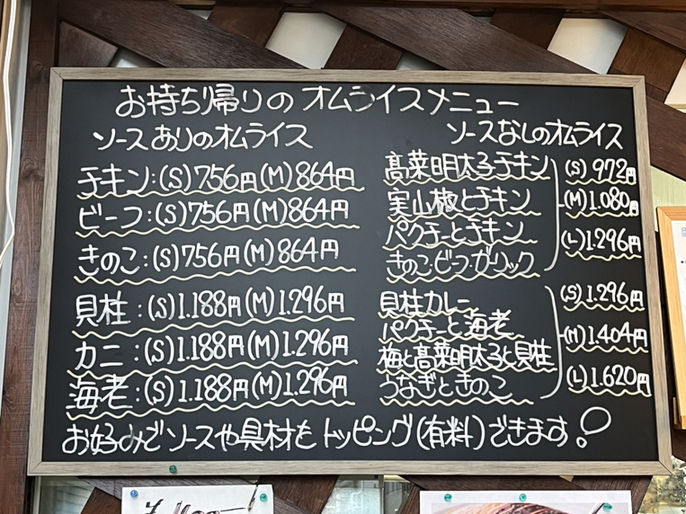 お持ち帰りのオムライスメニュー
ソースありのオムライス
チキン:(S)756円(M)864円
ビーフ:(S)756円(M)864円
きのこ:(S)756円(M)864円
貝柱:(S)1.188円(M)1.296円
カニ:(S)1.188円(M)1.296円
海老:(S)1.188円(M)1.296円
ソースなしのオムライス
高菜明太子チキン
実山椒とチキン
パクチーとチキン
きのこ・ビーフ・ガーリック
(S)972円
(M)1.080円
(L)1.296円
貝柱カレー
パクチーと海老
梅と高菜明太子と貝柱
うなぎときのこ
(S)1.296円
(M)1.404円
(L)1.620円
お好みでソースや具材もトッピング(有料)できます!